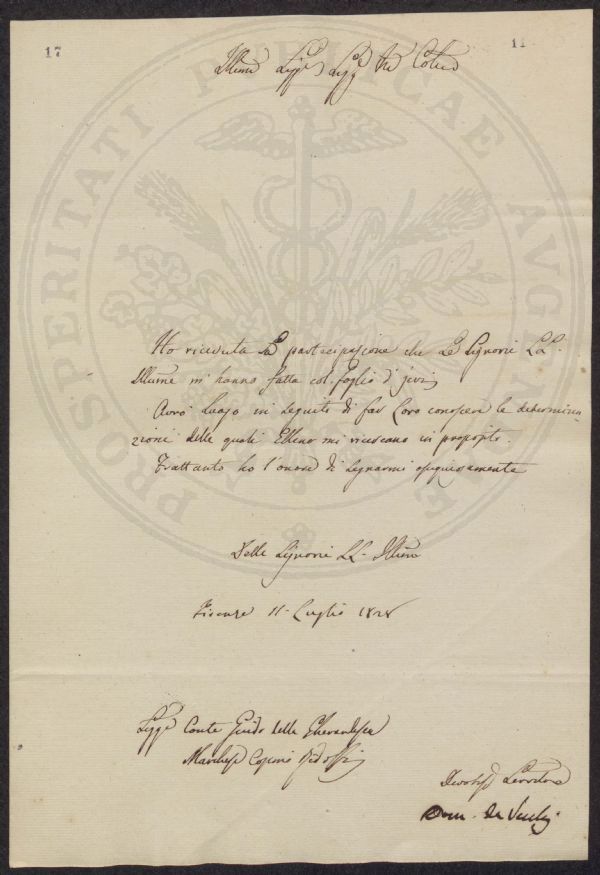 17
11
Illmi Sigg.i Sigg.i
Ho ricevuta la partecipazione che Le Signorie LL.
Illume m'hanno fatta col foglio d'jeri
Avrò luogo in seguito di far Loro conoscere le determina
zioni delle quali Elleno mi ricercano in proposito.
Frattanto ho l'onore di segnarmi ossequiosamente
Delle Signorie LL. Illme
Firenze 11. Luglio 1828
Sigg.i Conte Guido della Gherardesca
Marchese Cosimo Ridolfi
Devotiss. Servitore
PROSPERITATI PVBLICAE AVGENDAE